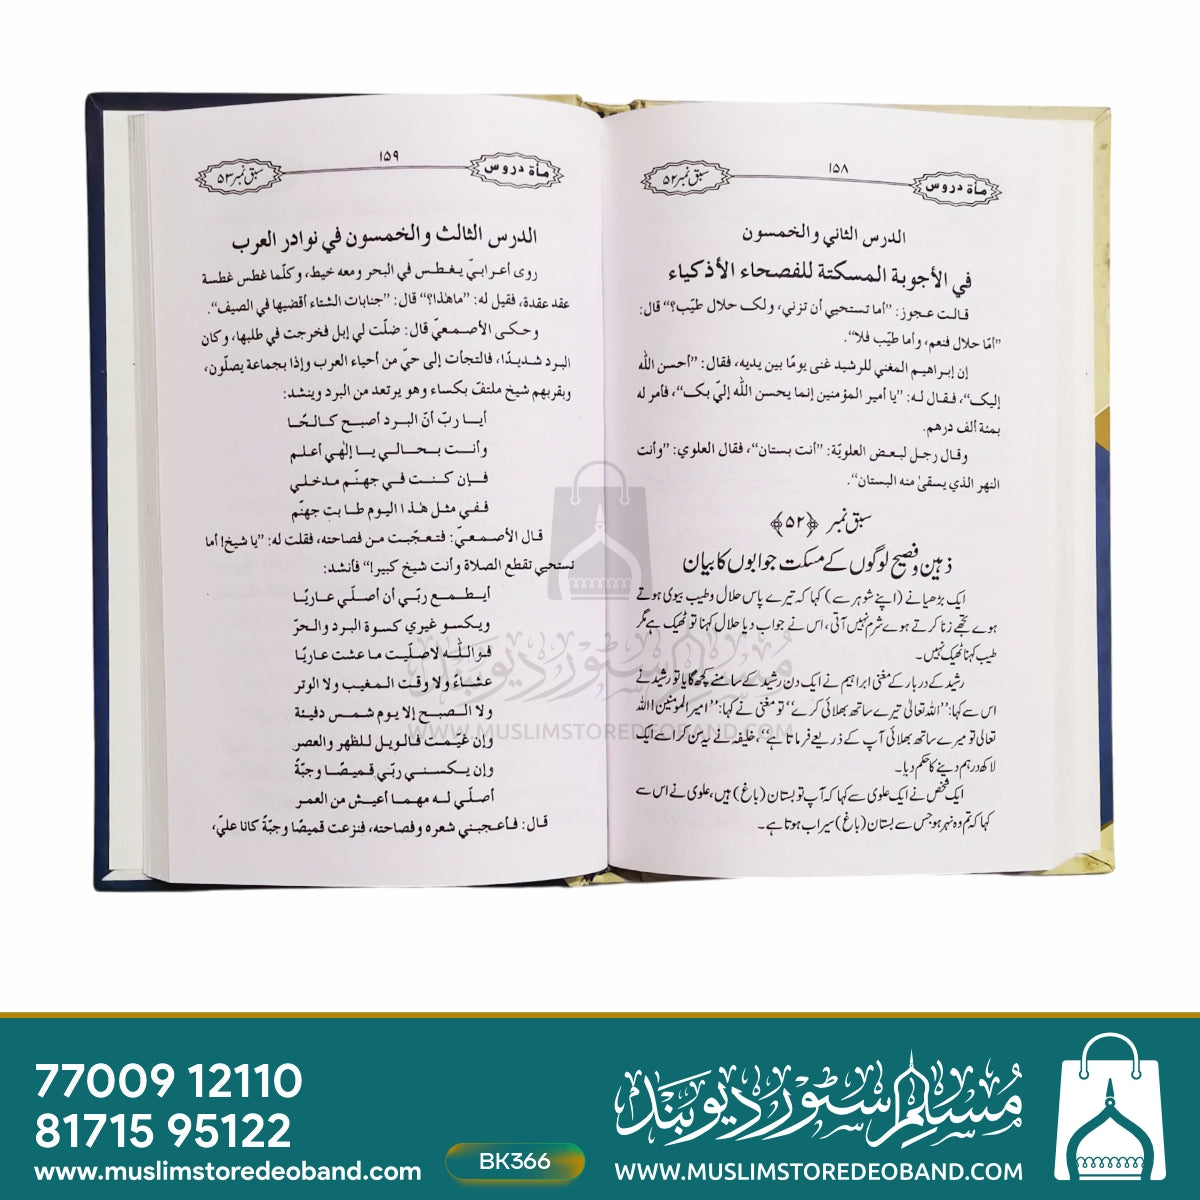 مأة دروس
١٥٨
سبق نمبر ٥٢
الدرس الثاني والخمسون
في الأجوبة المسكتة للفصحاء الأذكياء
قالت عجوز: ”أما تستحيي أن تزني، ولك حلال طيّب؟“ قال:
”أمّا حلال فنعم، وأما طيّب فلا“.
إن إبراهيم المغني للرشيد غنى يومًا بين يديه، فقال: ”أحسن الله
إليك“، فقال له: ”يا أمير المؤمنين إنما يحسن الله إليّ بك“، فأمر له
بمئة ألف درهم.
وقال رجل لبعض العلويّة: ”أنت بستان“، فقال العلوي: ”وأنت
النهر الذي يسقىٰ منه البستان“.
سبق نمبر ﴿٥٢﴾
ذہین و فصیح لوگوں کے مسکت جوابوں کا بیان
ایک بڑھیا نے (اپنے شوہر سے) کہا کہ تیرے پاس حلال و طیب بیوی ہوتے
ہوے تجھے زنا کرتے ہوے شرم نہیں آتی، اس نے جواب دیا حلال کہنا تو ٹھیک ہے مگر
طیب کہنا ٹھیک نہیں۔
رشید کے دربار کے مغنی ابراہیم نے ایک دن رشید کے سامنے کچھ گایا تو رشید نے
اس سے کہا: ’’اللہ تعالیٰ تیرے ساتھ بھلائی کرے‘‘ تو مغنی نے کہا: ’’امیر المومنین! اللہ
تعالی تو میرے ساتھ بھلائی آپ کے ذریعے فرماتا ہے‘‘، خلیفہ نے یہ سن کر اسے ایک
لاکھ درہم دینے کا حکم دیا۔
ایک شخص نے ایک علوی سے کہا کہ آپ تو بستان (باغ) ہیں، علوی نے اس سے
کہا کہ تم وہ نہر ہو جس سے بستان (باغ) سیراب ہوتا ہے۔
مأة دروس
١٥٩
سبق نمبر ٥٣
الدرس الثالث والخمسون في نوادر العرب
روى أعرابيّ يغطس في البحر ومعه خيط، وكلّما غطس غطسة
عقد عقدة، فقيل له: ”ماهذا؟“ قال: ”جنابات الشتاء أقضيها في الصيف“.
وحكى الأصمعيّ قال: ضلّت لي إبل فخرجت في طلبها، وكان
البرد شديدًا، فالتجأت إلى حيّ من أحياء العرب وإذا بجماعة يصلّون،
وبقربهم شيخ ملتفّ بكساء وهو يرتعد من البرد وينشد:
أيا ربّ أنّ البرد أصبح كالحًا
وأنت بحالي يا إلٰهي أعلم
فإن كنت في جهنّم مدخلي
ففي مثل هٰذا اليوم طابت جهنّم
قال الأصمعيّ: فتعجّبت من فصاحته، فقلت له: ”يا شيخ! أما
تستحيي تقطع الصلاة وأنت شيخ كبير!“ فأنشد:
أيطمع ربّي أن أصلّي عاريًا
ويكسو غيري كسوة البرد والحرّ
فوالله لاصلّيت ما عشت عاريًا
عشاءً ولا وقت المغيب ولا الوتر
ولا الصبح إلا يوم شمس دفيئة
وإن غيّمت فالويل للظهر والعصر
وإن يكسني ربّي قميصًا وجبّةً
أصلّي له مهما أعيش من العمر
قال: فأعجبني شعره وفصاحته، فنزعت قميصًا وجبّةً كانا عليّ،
مسلم سٹور دیوبند
WWW.MUSLIMSTOREDEOBAND.COM
77009 12110
81715 95122
www.muslimstoredeoband.com
BK366
مسلم سٹور دیوبند
WWW.MUSLIMSTOREDEOBAND.COM